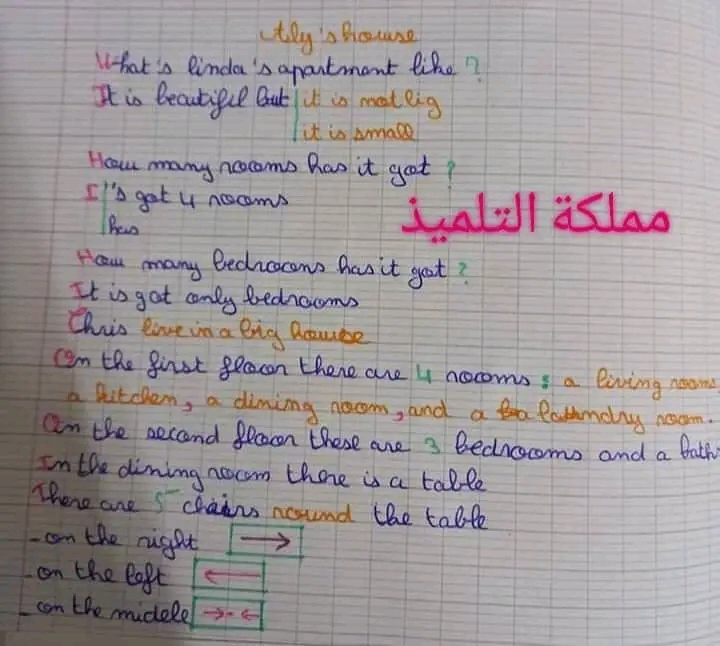 Aly's house
What's linda's apartment like ?
It is beautiful but it is not big
it is small
How many rooms has it got ?
I's got 4 rooms
has
مملكة التلميذ
How many bedrooms has it got ?
It is got only bedrooms
Chris live in a big house
On the first floor there are 4 rooms : a living room
a kitchen, a dining room, and a room.
On the second floor these are 3 bedrooms and a bath
In the dining room there is a table
There are 5 chairs round the table
- on the right
- on the left
- on the midele